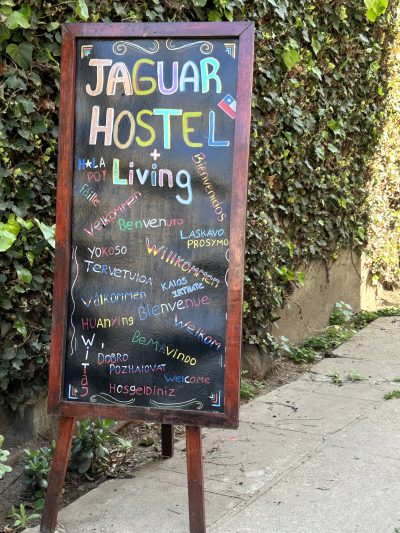 JAGUAR
HOSTEL
+
Living
H★LA
PO!
Bienvenidos
Velkommen
Benvenuto
LASKAVO
PROSYMO
YOKOSO
Willkommen
TERVETULOA
Välkommen
Bienvenue
HUANYING
Welkom
WITAJ
BEM-VINDO
DOBRO
POZHALOVAT
Welcome
HosgelDiniz